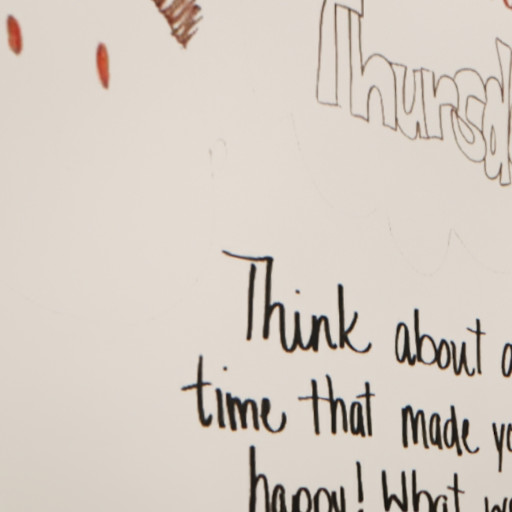 Thursd
Think about a
time that made yo
happy! What w